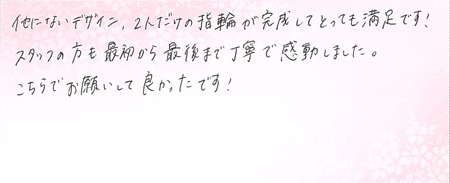 他にないデザイン，2人だけの指輪が完成してとっても満足です！
スタッフの方も最初から最後まで丁寧で感動しました。
こちらでお願いして良かったです！